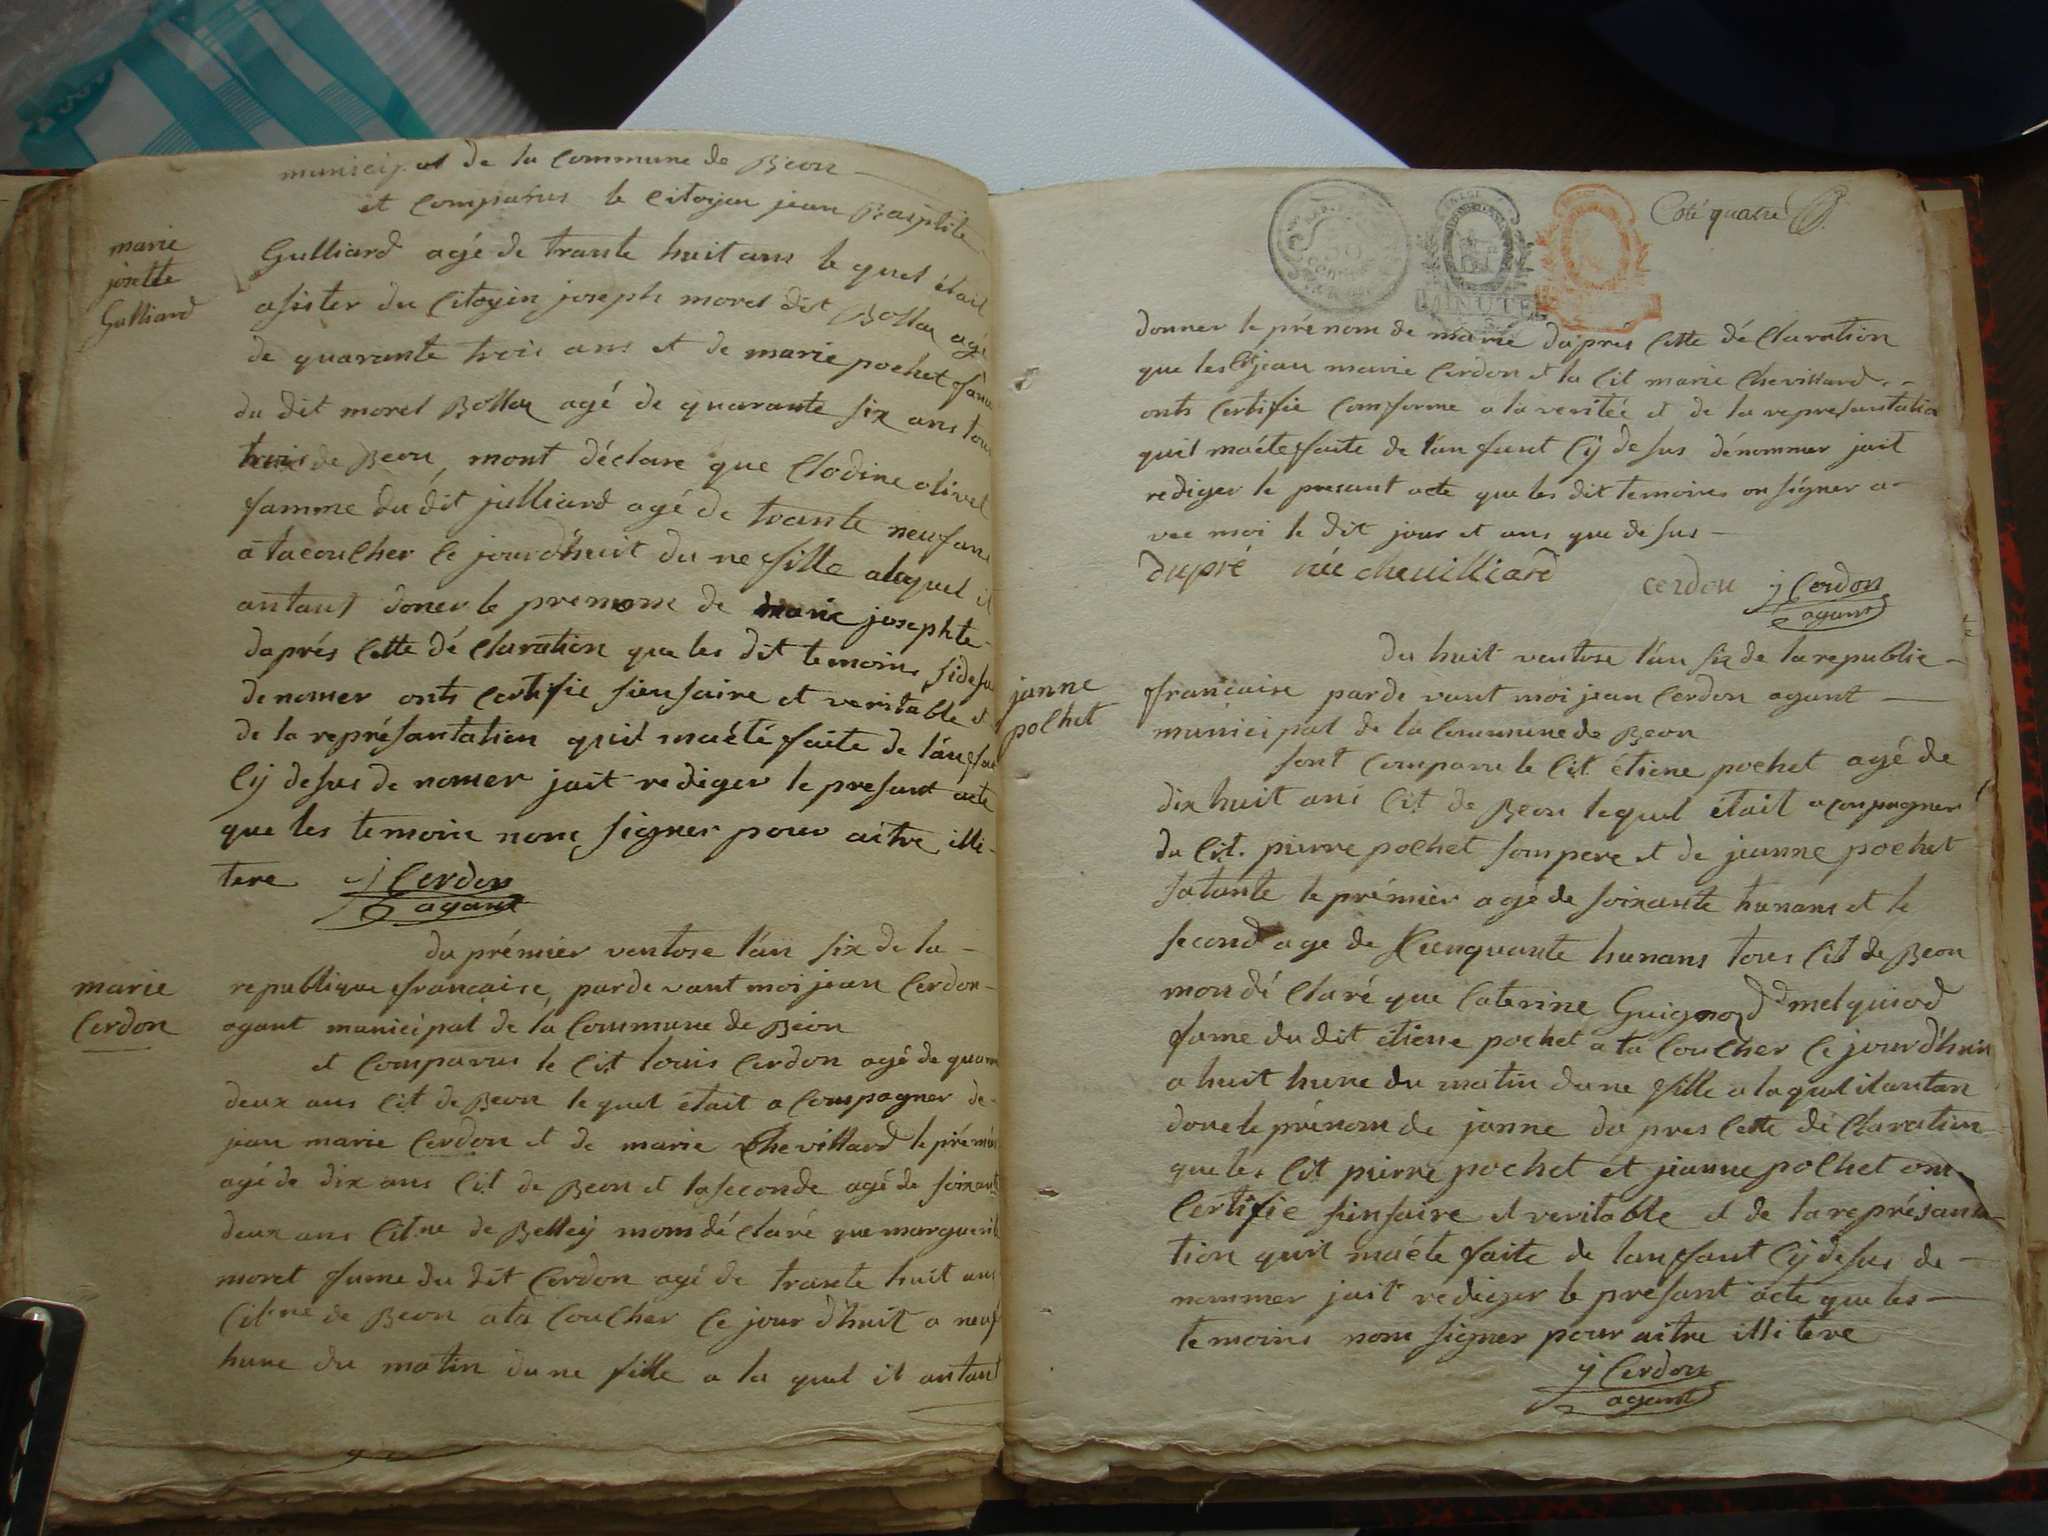 municipal de la Commune de Beon
et Comparus le Citoyen jean Baptite
marie
josette
Gulliard
Gulliard agé de trante huit ans le quel était
asister du Citoyin joseph morel dit Bollar agé
de quarante trois ans et de marie pochet fame
du dit morel Bollar agé de quarante six ans tous
trois de Beon, mont déclare que Clodine olivet
famme du dit julliard agé de trante neuf ans
a tacoulher le jourdhuit du ne fille alaquel il
antant doner le premom de marie josephte
daprés Cette dé Claration que les dit temoins sidesu
denomer onts Certifie sinsaire et veritable et
de la représantation quil maété faite de lánfan
Cij desus de nomer jait rediger le presant acte
que les temoin nom signer pour aitre illi-
tere j Cerdon
agant
marie
Cerdon
du prémier vantose lán six de la
republique francaise, parde vant moi jean Cerdon
agant municipal de la Commune de Beon
et Comparus le Cit louis Cerdon agé de quarante
deux ans Cit de Beon le quel était a Compagner de
jean marie Cerdon et de marie Chevillard le prémier
agé de dix ans Cit de Beon et la seconde agé de soixante
deux ans Cit.ne de Belley mom dé Claré que marguerit
moret fame du dit Cerdon agé de trante huit ans
Cit.ne de Beon a ta Coulher Ce jour d'huit a neuf
hure du matin du ne fille a la quel il antant
Coté quatre
MINUTE
donner le prénom de marie dapres Cette dé Claration
que les Cit jean marie Cerdon et la Cit marie Chevillard
onts Certifie Comforme a la veritée et de la represantation
quil maéte faite de lán fant Cij desus dénommer jait
rediger le presant acte que les dit temoins on signer a-
vec moi le dit jour et ans que desus
dupré née cheuilliard cerdon j Cerdon
agant
janne
polhet
du huit vantose lán six de la republic
francaise parde vant moi jean Cerdon agant
municipal de la Commune de Beon
sont Comparu le Cit étiene pochet agé de
dix huit ans Cit de Beon lequel était acompagner
du Cit. pierre pochet som pere et de jeanne pochet
ta tante le prémier agé de soixante hunans et le
second age de Cienquante hunans tous Cit de Beon
mon dé Claré que Caterine Guignard d melquiod
fame du dit étiene pochet a ta Coulher Ce jourd'huit
a huit hure du matin dune fille a laquel il antan
done le prénom de janne da pres Cette dé Claration
que les Cit pierre pochet et jeanne polhet ont
Certifie sinsaire et veritable et de la représanta-
tion quil maéte faite de lanfant Cij desus de
nommer jait rediger le présant acte que les
temoins nom signer pour aitre illi tere
j Cerdon
agant